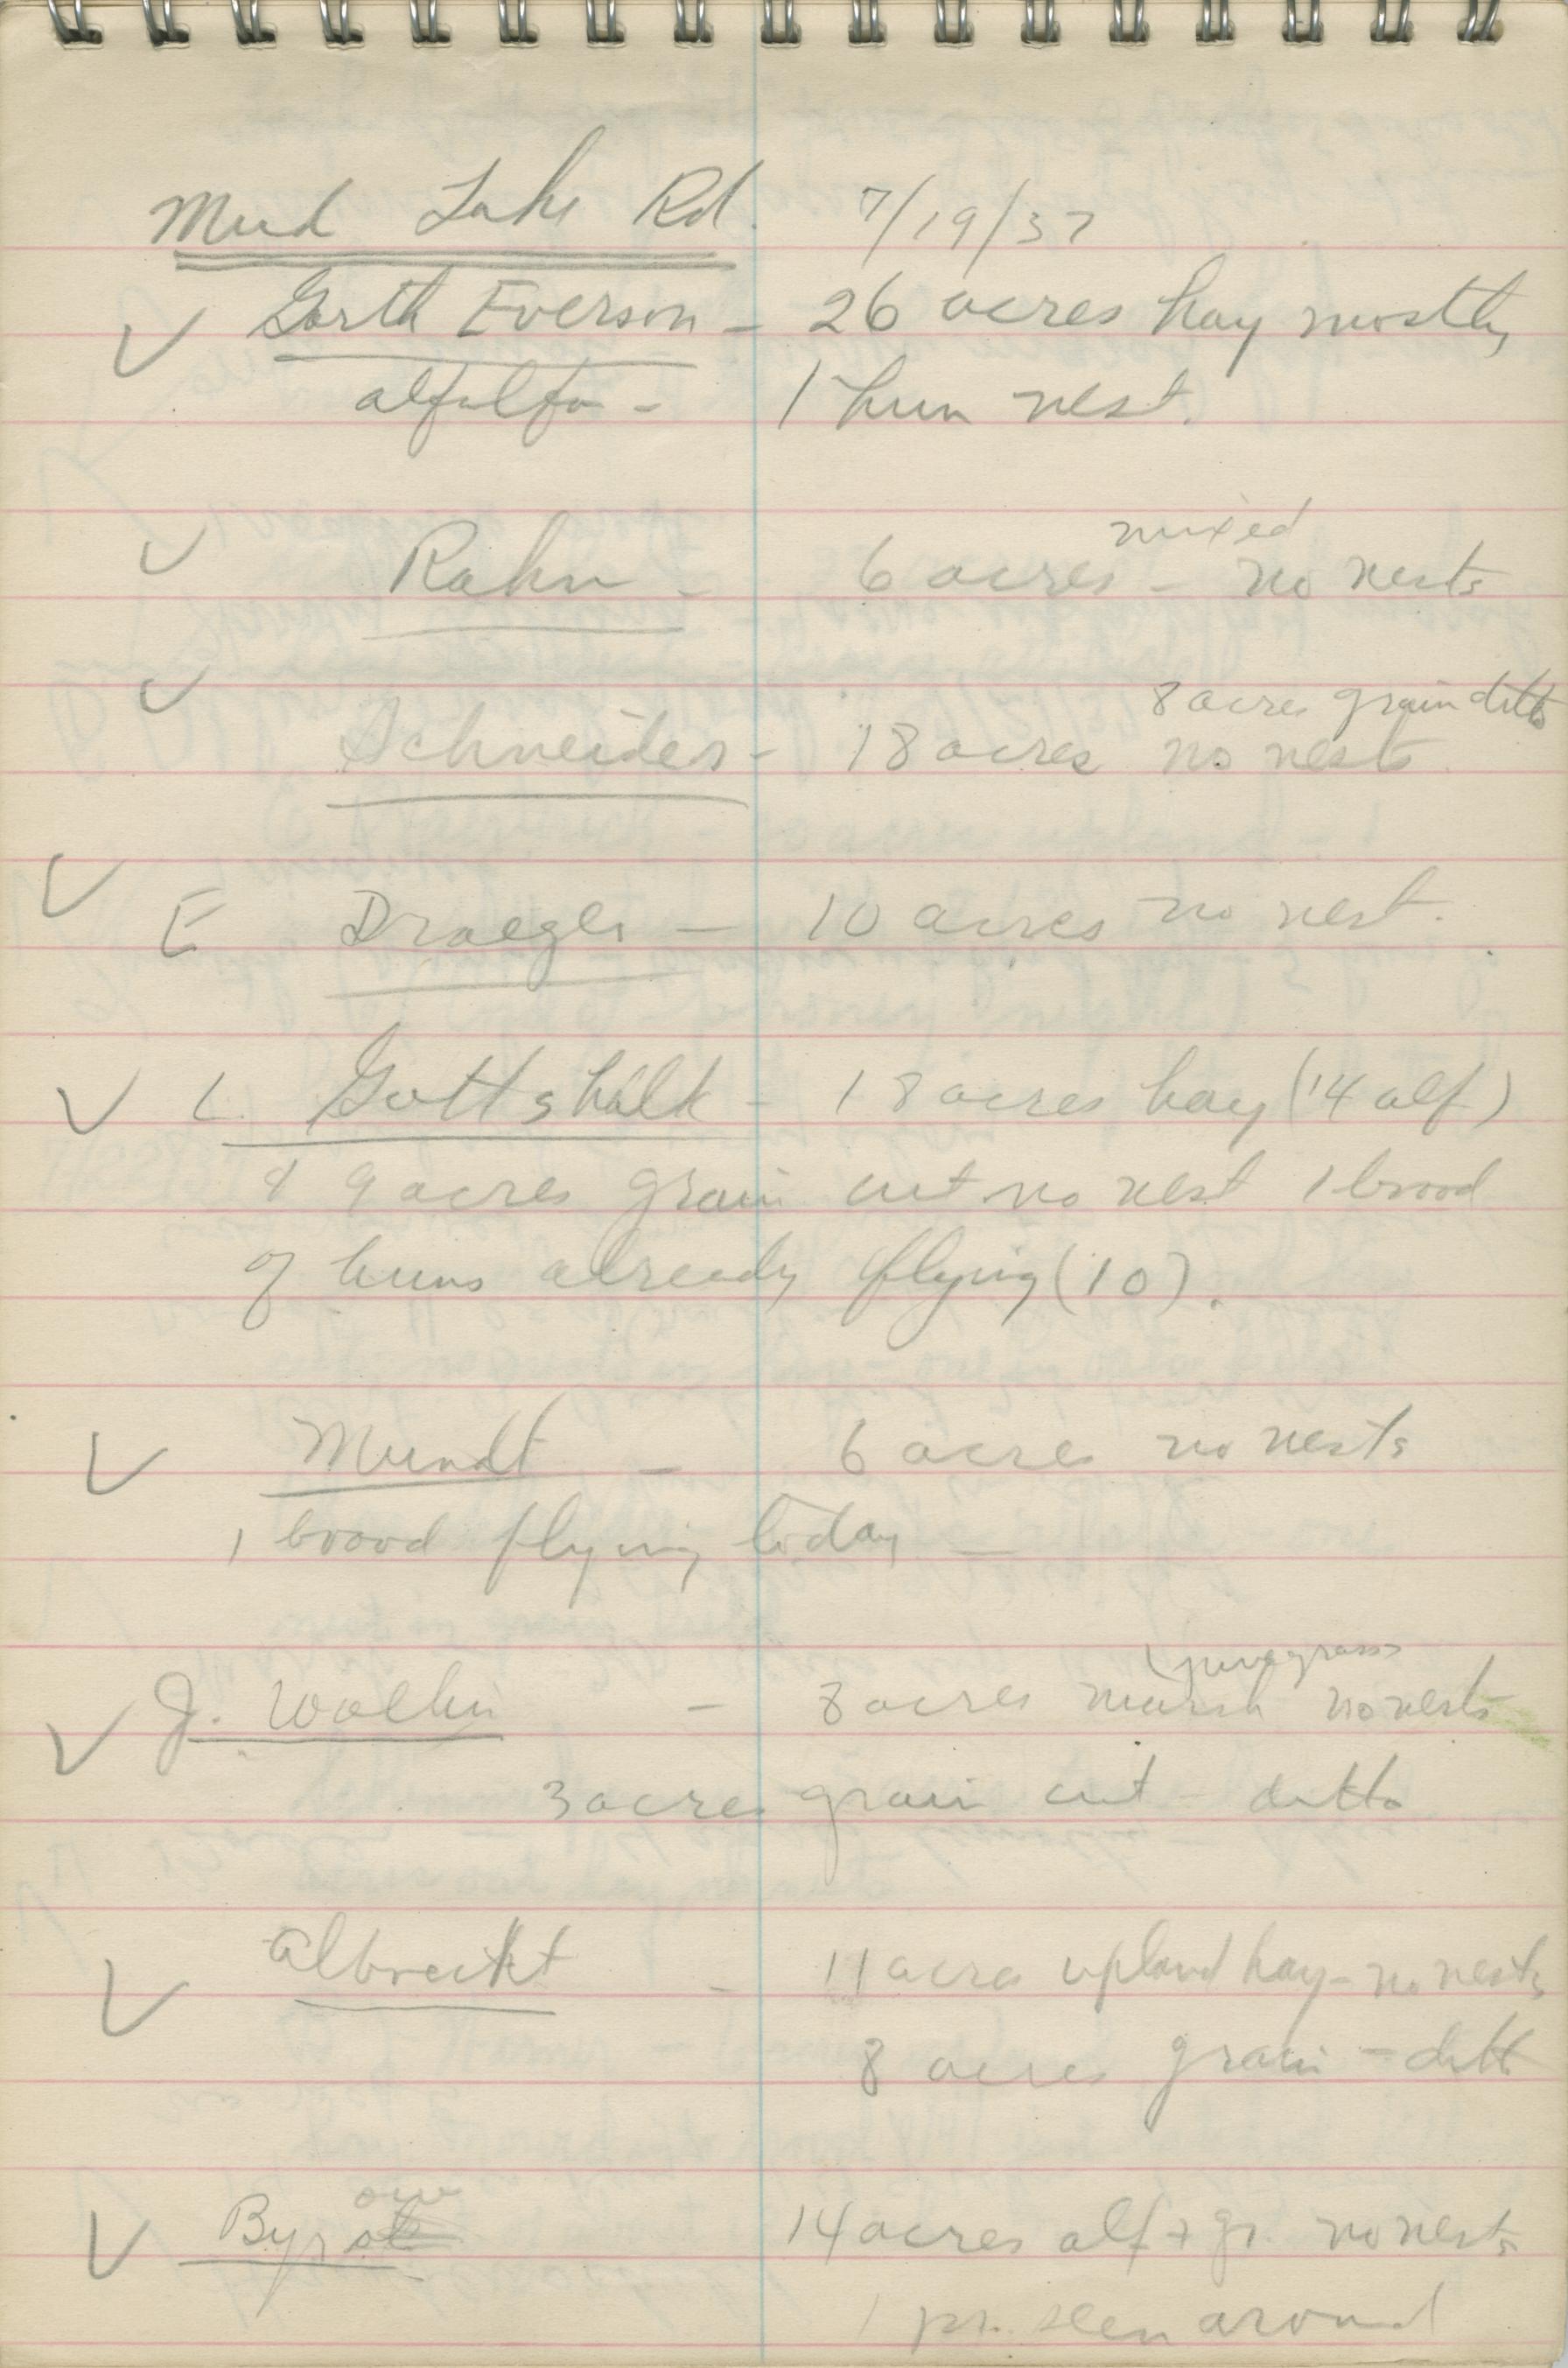 Mud Lake Rd. 7/19/37
Garth Everson - 26 acres hay mostly
alfalfa - 1 hun nest.
mixed
Rahn - 6 acres - no nests
8 acres grain ditto
Schneider - 18 acres no nests
E Draeger - 10 acres no nest.
L. Gottshalk - 18 acres hay (14 alf)
& 9 acres grain cut no nest 1 brood
of huns already flying (10).
Mundt - 6 acres no nests
1 brood flying today -
(june grass)
J. Wollin - 8 acres marsh no nests
3 acres grain cut - ditto
Albrecht - 11 acres upland hay - no nests
8 acres grain - ditto
14 acres alf + gr. no nests
1 pr. seen around